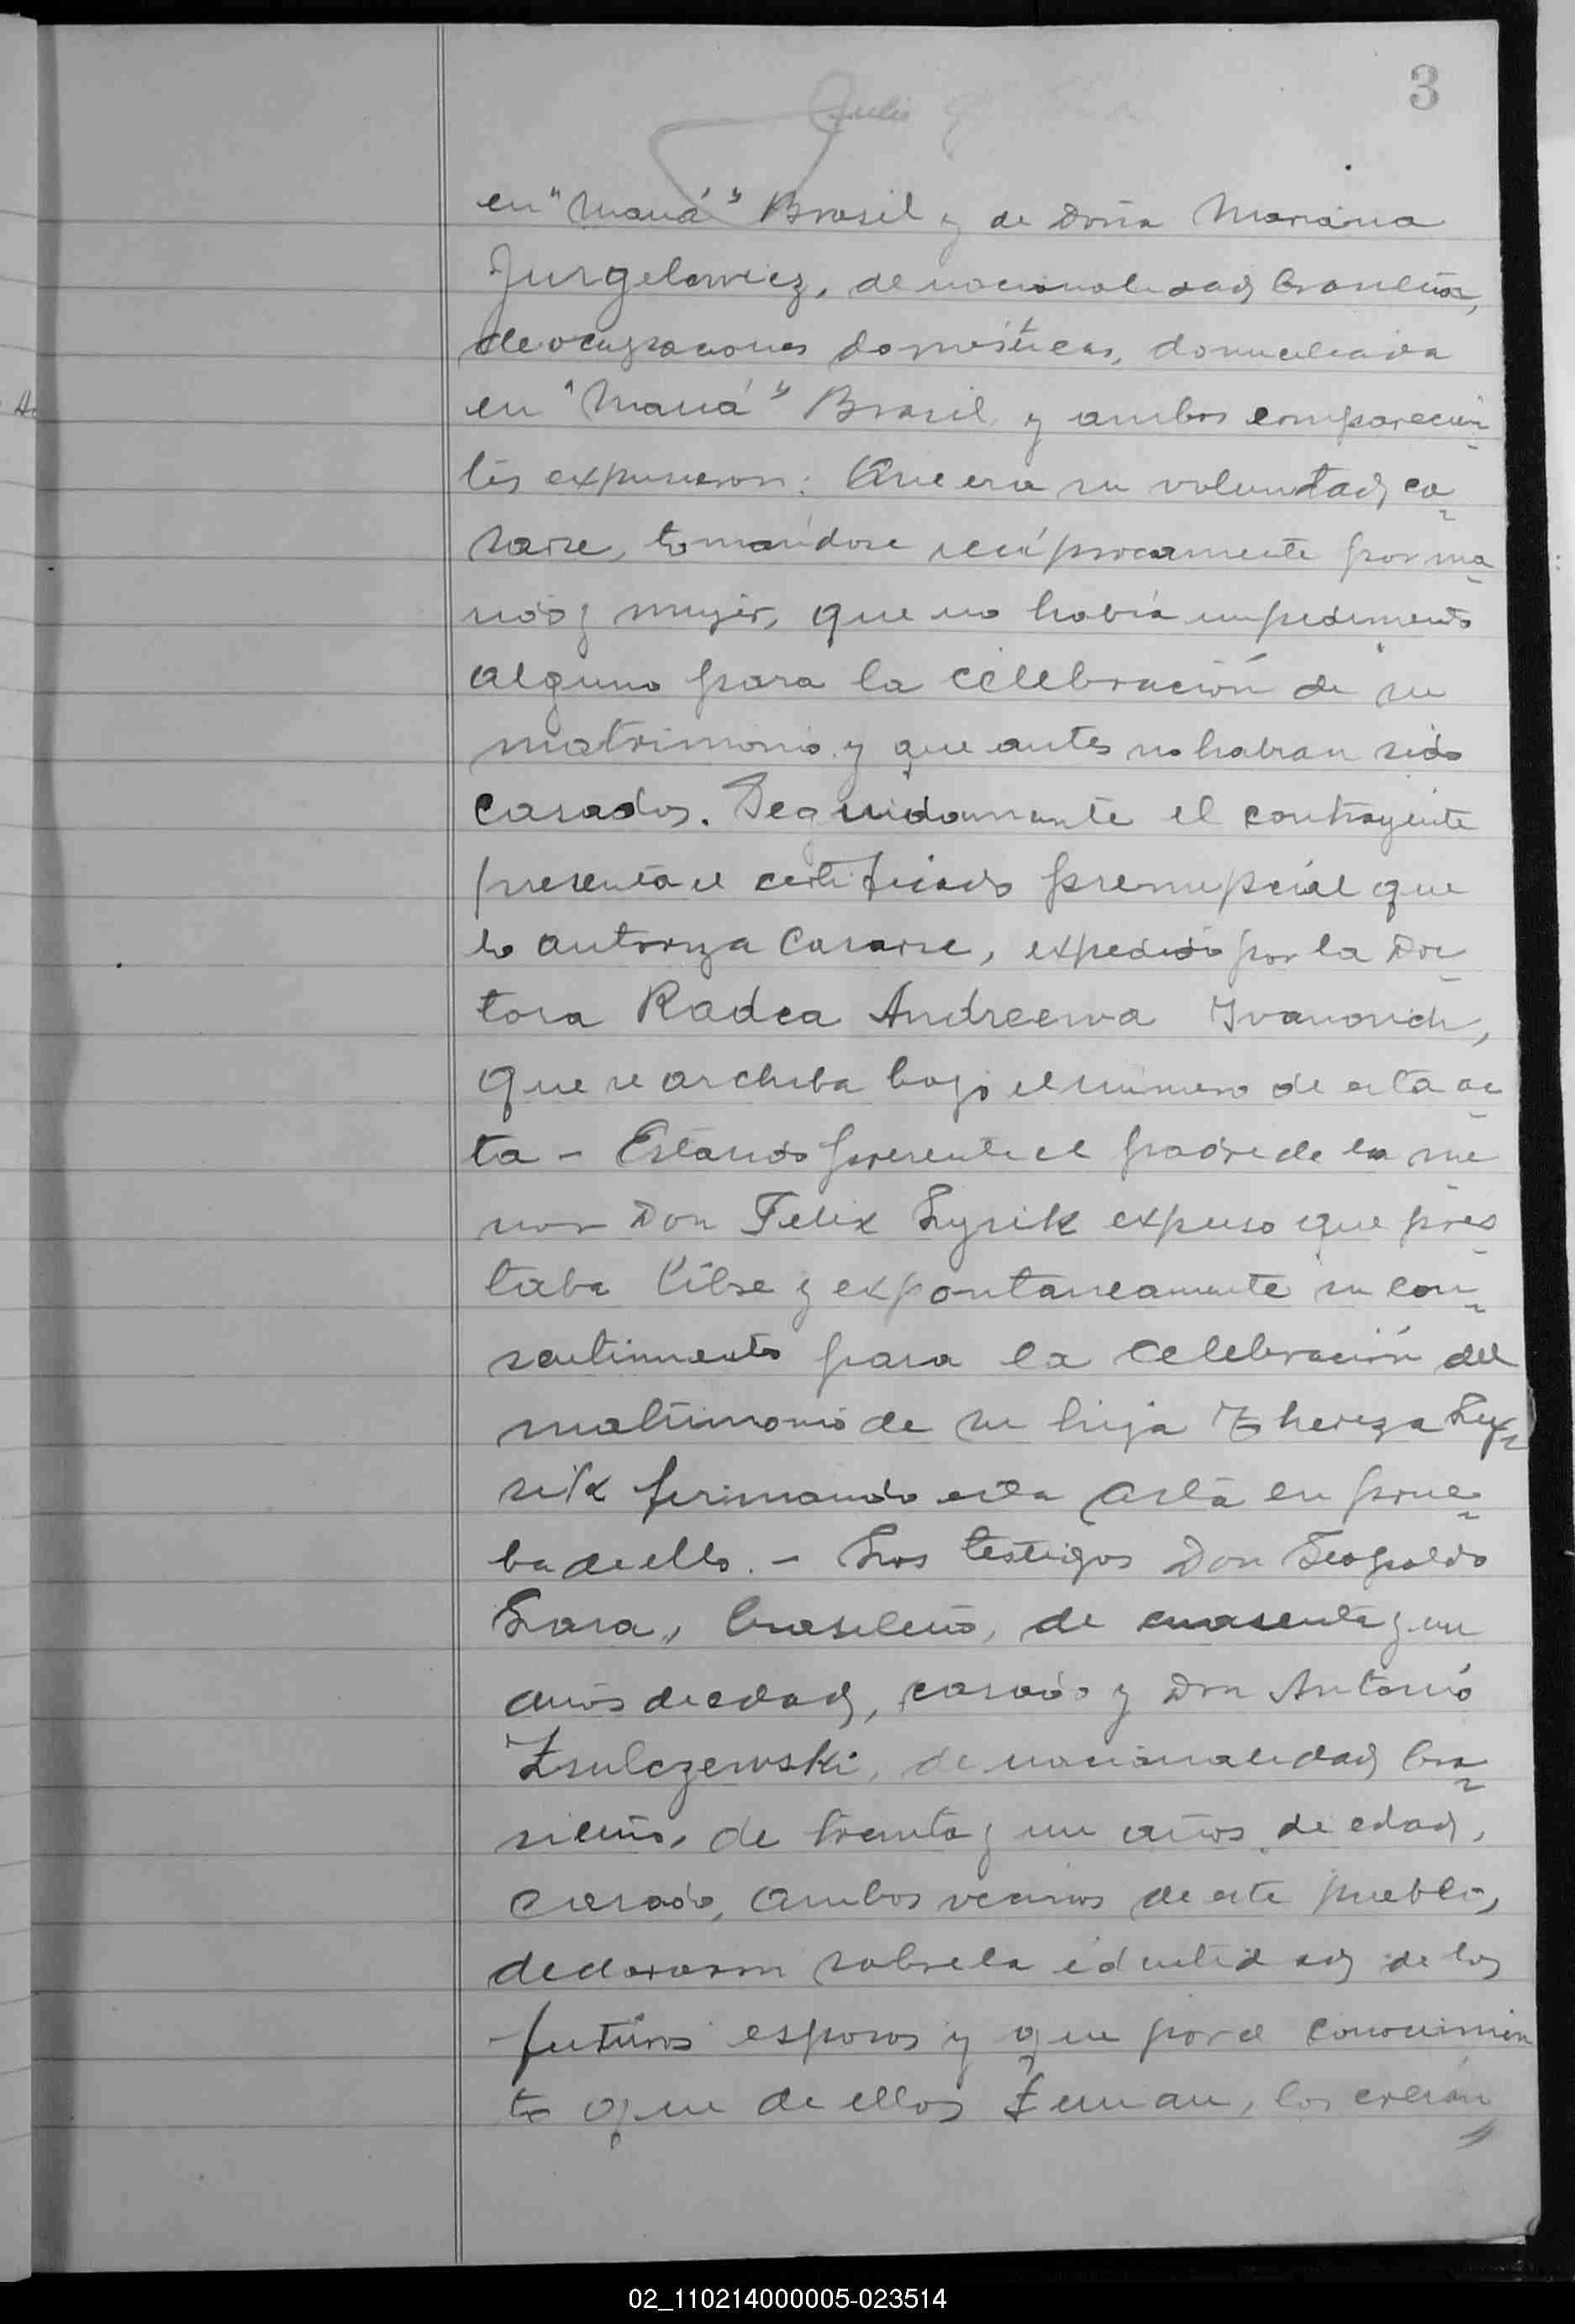 3
Julio
en "Mauá" Brasil y de Doña Mariana
Jurgelewicz, de nacionalidad brasileña,
de ocupaciones domésticas, domiciliada
en "Mauá" Brasil y ambos comparecien
tes expusieron: Que era su voluntad ca
sarse, tomándose recíprocamente por ma
rido y mujer, que no había impedimento
alguno para la celebración de su
matrimonio y que antes no habian sido
casados. Seguidamente el contrayente
presenta el certificado prenupcial que
lo autoriza casarse, expedido por la Doc
tora Radca Andreewa Ivanovich,
que se archiba bajo el número de esta ac
ta - Estando presente el padre de la me
nor Don Felix Lysik expuso que pres
taba libre y expontaneamente su con
sentimiento para la celebración del
matrimonio de su hija Thereza Ly
sik firmando esta acta en prue
ba de ello. - Los testigos Don Leopoldo
Lara, brasileño, de cuarenta y un
años de edad, casado y Don Antonio
Zsulczewski, de nacionalidad bra
sileño, de treinta y un años de edad,
casado, ambos vecinos de este pueblo,
declararon sobre la identidad de los
futuros esposos y que por el conocimien
to que de ellos tenian, los creían
02_110214000005-023514